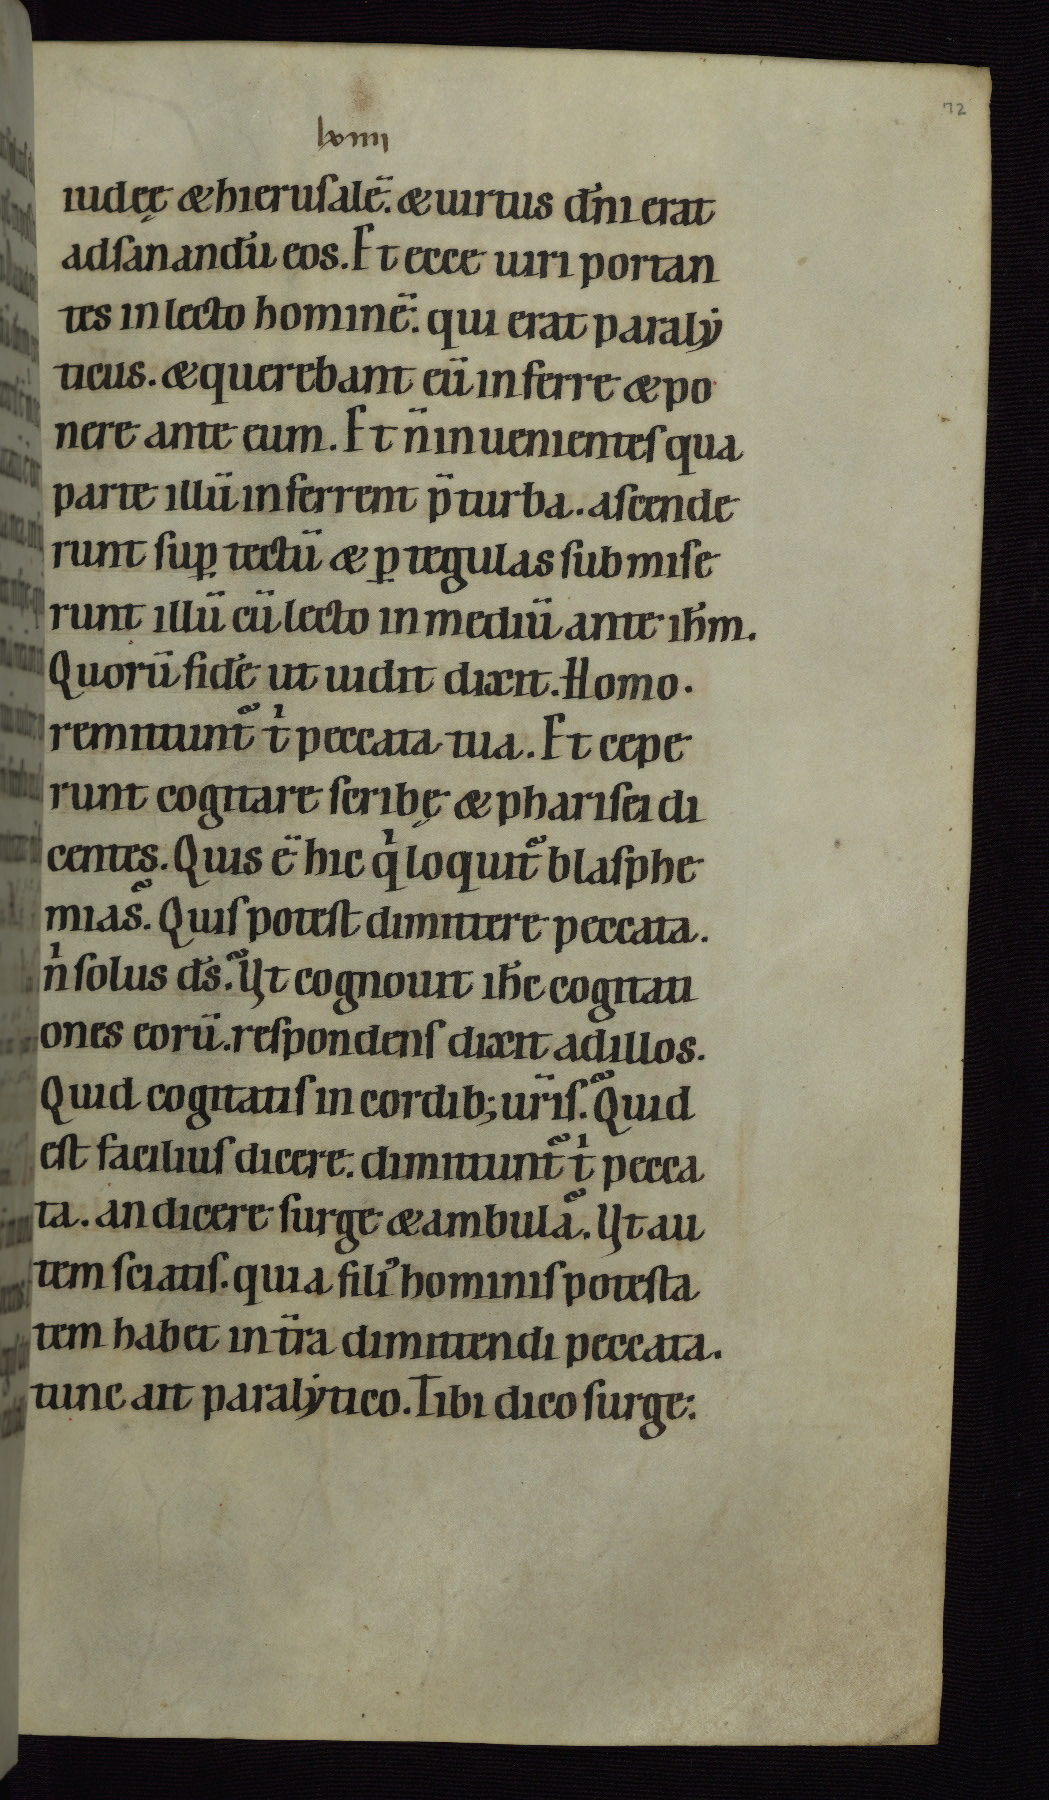 72
lxiiii
iudeę & hieruſalē. & uirtus dn̄i erat
adſanandū eos. Et ecce uiri portan
tes in lecto hominē. qui erat paralẏ
ticus. & querebant eū inferre & po
nere ante eum. Et n̄ inuenienteſ qua
parte illū inferrent p̄ turba. aſcende
runt ſuꝑ tectū & ꝑ tegulas ſubmiſe
runt illū cū lecto in mediū ante ih̄m.
Quorū fidē ut uidit dixit. Homo.
remittunt᷑ tⁱ peccata tua. Et cepe
runt cogitare ſcribę & phariſei di
centes. Quis ē hic qⁱ loquit᷑ blaſphe
mias. Quiſ poteſt dimittere peccata.
nⁱ ſolus ds̄. Ut cognouit ih̄c cogitati
ones eorū. reſpondenſ dixit adillos.
Quid cogitatiſ in cordib; ur̄iſ. Quid
eſt faciliuſ dicere. dimittunt᷑ tⁱ pecca
ta. an dicere ſurge & ambula. Ut au
tem ſciatiſ. quia fili᷒ hominiſ poteſta
tem habet in tr̄a dimittendi peccata.
tunc ait paralẏtico. Tibi dico ſurge.